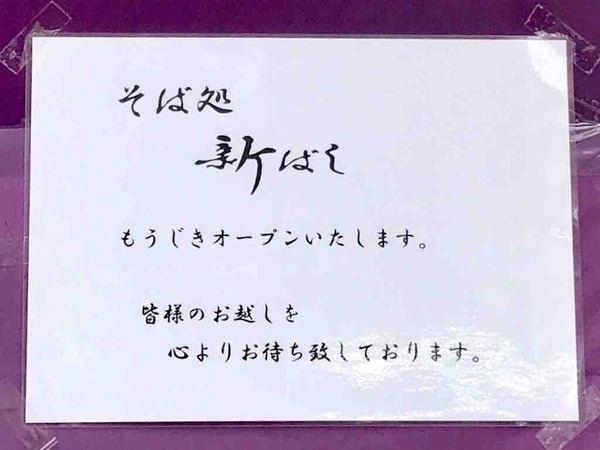 そば処
新ばし
もうじきオープンいたします。
皆様のお越しを
心よりお待ち致しております。